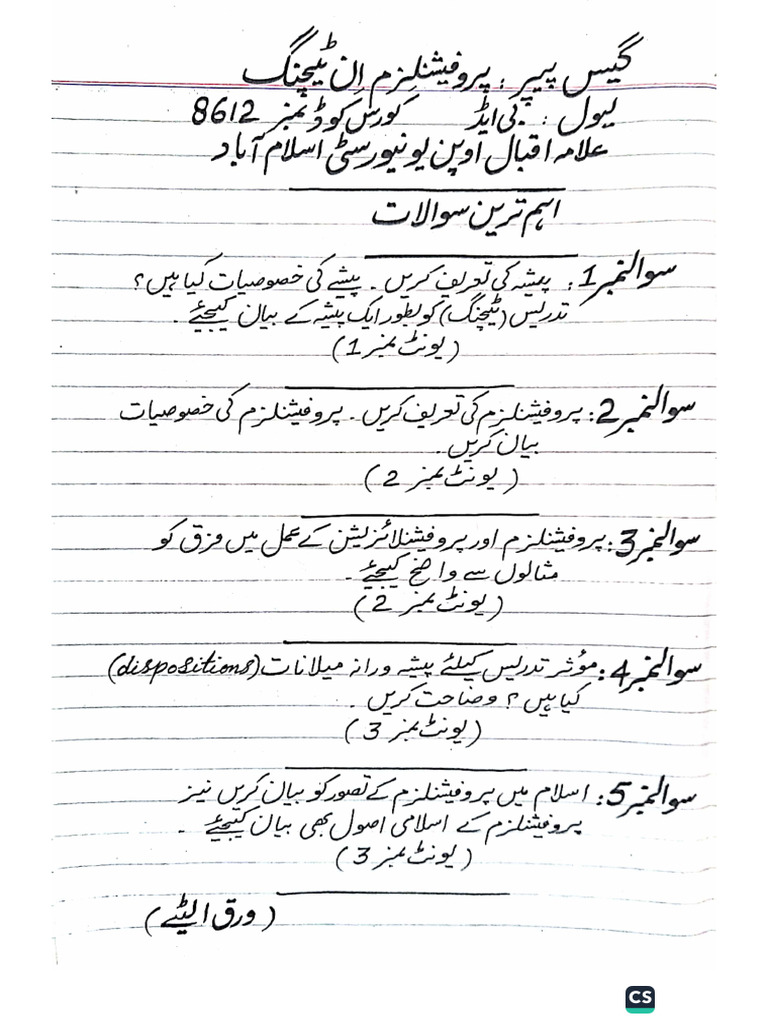 گیس پیپر : پروفیشنلزم اِن ٹیچنگ
لیول : بی ایڈ کورس کوڈ نمبر 8612
علامہ اقبال اوپن یونیورسٹی اسلام آباد
اہم ترین سوالات
سوالنمبر 1: پیشہ کی تعریف کریں۔ پیشے کی خصوصیات کیا ہیں؟
تدریس (ٹیچنگ) کو بطور ایک پیشہ کے بیان کیجیئے۔
(یونٹ نمبر 1)
سوالنمبر 2: پروفیشنلزم کی تعریف کریں۔ پروفیشنلزم کی خصوصیات
بیان کریں۔
(یونٹ نمبر 2)
سوالنمبر 3: پروفیشنلزم اور پروفیشنلائزیشن کے عمل میں فرق کو
مثالوں سے واضح کیجیئے۔
(یونٹ نمبر 2)
سوالنمبر 4: مؤثر تدریس کیلئے پیشہ ورانہ میلانات (dispositions)
کیا ہیں؟ وضاحت کریں۔
(یونٹ نمبر 3)
سوالنمبر 5: اسلام میں پروفیشنلزم کے تصور کو بیان کریں نیز
پروفیشنلزم کے اسلامی اصول بھی بیان کیجیئے۔
(یونٹ نمبر 3)
(ورق الٹیے)
CS